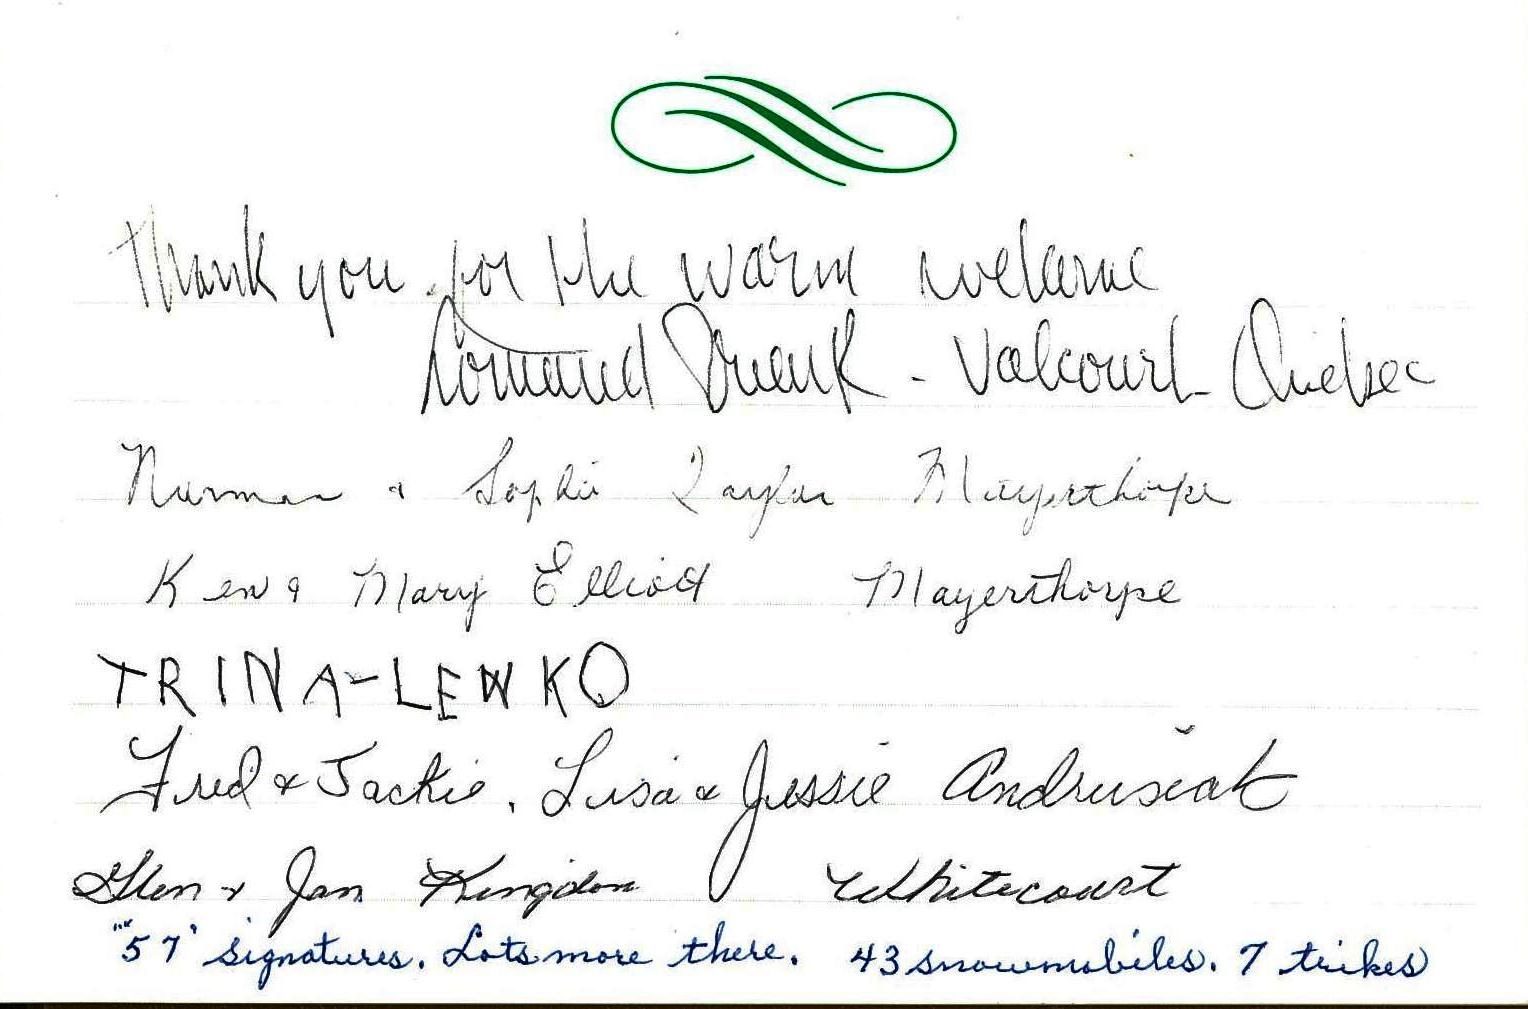 Thank you for the warm welcome
- Valcourt Quebec
Norman & Sophie Taylor Mayerthorpe
Ken & Mary Elliott Mayerthorpe
TRINA-LEWKO
Fred & Jackie, Lisa & Jessie Andrusiak
Glen & Jan Kingdon Whitecourt
"57" signatures. Lots more there. 43 snowmobiles. 7 trikes